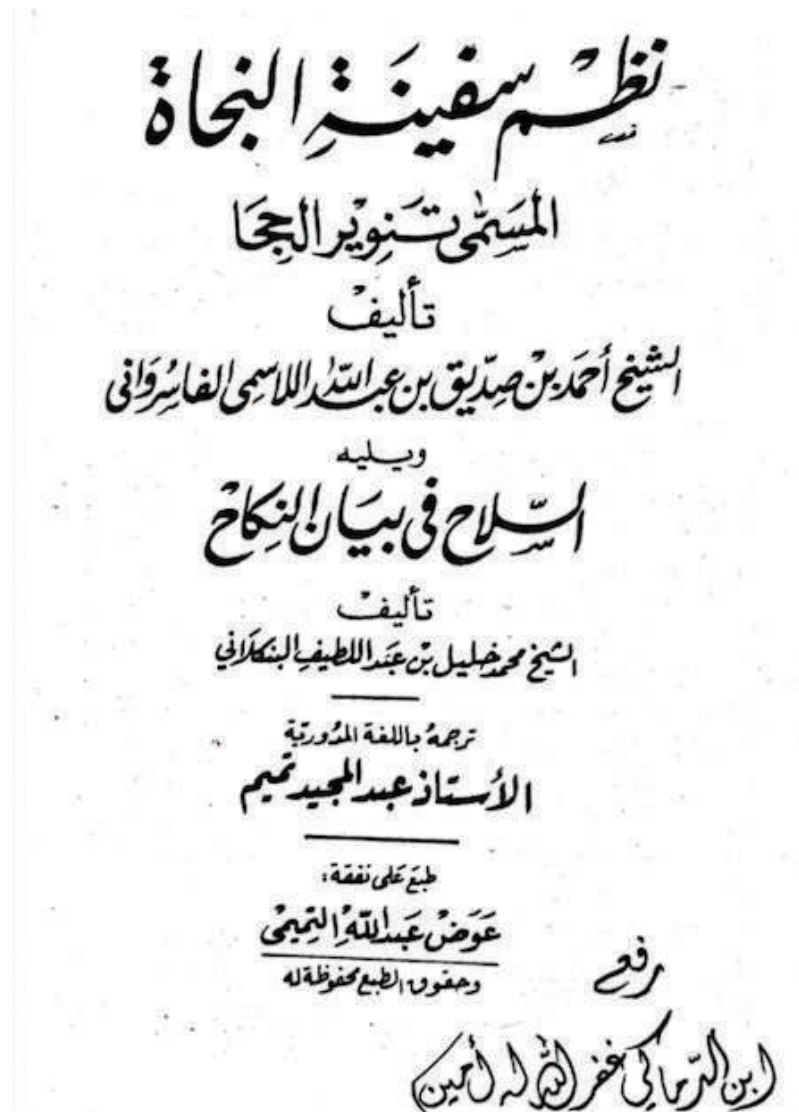 نظم سفينة النجاة
المسمّى تنوير الحجا
تأليف
الشيخ أحمد بن صدّيق بن عبد الله اللاسمى الفاسرواني
ويليه
السّلاح فى بيان النكاح
تأليف
الشيخ محمد خليل بن عبد اللطيف البنكلاني
ترجمة باللغة المدورية
الأستاذ عبد المجيد تميم
طبع على نفقة:
عوض عبد الله التميمى
وحقوق الطبع محفوظة له
رفع
ابن الدّماكي غفر الله له أمين